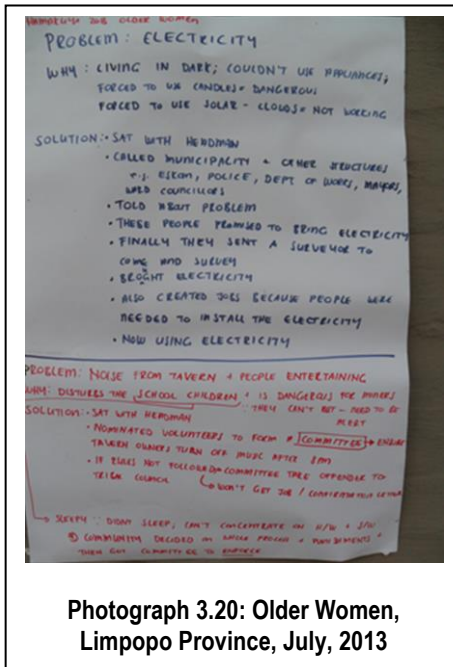 JOB OLDER WOMEN
PROBLEM: ELECTRICITY
WHY: LIVING IN DARK; COULDN'T USE APPLIANCES;
FORCED TO USE CANDLES = DANGEROUS
FORCED TO USE SOLAR - CLOUDS = NOT WORKING
SOLUTION: • SAT WITH HEADMAN
• CALLED MUNICIPALITY + OTHER STRUCTURES
e.g. ESKOM, POLICE, DEPT OF WORKS, MAYORS,
WARD COUNCILLORS
• TOLD ABOUT PROBLEM
• THESE PEOPLE PROMISED TO BRING ELECTRICITY
• FINALLY THEY SENT A SURVEYOR TO
COME AND SURVEY
• BROGHT ELECTRICITY
• ALSO CREATED JOBS BECAUSE PEOPLE WERE
NEEDED TO INSTALL THE ELECTRICITY
• NOW USING ELECTRICITY
PROBLEM: NOISE FROM TAVERN + PEOPLE ENTERTAINING
WHY: DISTURBS THE SCHOOL CHILDREN + IS DANGEROUS FOR MINERS
∵ THEY CAN'T - NEED TO BE
ALERT
SOLUTION: - SAT WITH HEADMAN
• NOMINATED VOLUNTEERS TO FORM A COMMITTEE → ENSURE
TAVERN OWNERS TURN OFF MUSIC AFTER 8PM
• IF RULES NOT FOLLOWED → COMMITTEE TAKE OFFENDER TO
TRIBAL COUNCIL
↳ WON'T GET JOB / CONFIRMATION LETTER
→ SLEEPY ∵ DIDNT SLEEP, CAN'T CONCENTRATE ON H/W + S/W
COMMUNITY DECIDED ON WHOLE PROCESS + PUNISHMENTS +
THEN GOT COMMITTEE TO ENFORCE
Photograph 3.20: Older Women,
Limpopo Province, July, 2013